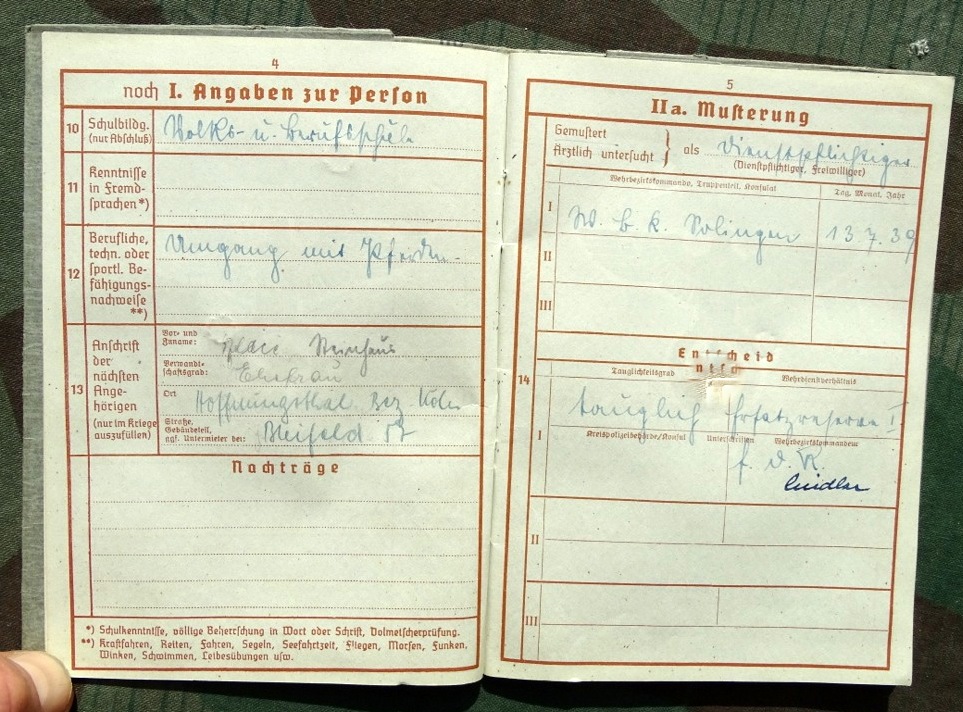 4
noch I. Angaben zur Person
10 Schulbildg. (nur Abschluß)
Volks- u. Berufsschule
11 Kenntnisse in Fremdsprachen *)
12 Berufliche, techn. oder sportl. Befähigungsnachweise **)
Umgang mit Pferden
13 Anschrift der nächsten Angehörigen (nur im Kriege auszufüllen)
Vor- und Zuname: Steinhaus
Verwandtschaftsgrad: Ehefrau
Ort Hoffnungsthal Bez Köln
Straße, Gebäudeteil, ggf. Untermieter bei: Bleifeld
Nachträge
*) Schulkenntnisse, völlige Beherrschung in Wort oder Schrift, Dolmetscherprüfung.
**) Kraftfahren, Reiten, Fahren, Segeln, Seefahrtzeit, Fliegen, Morsen, Funken,
Winken, Schwimmen, Leibesübungen usw.
5
IIa. Musterung
Gemustert
Ärztlich untersucht } als Dienstpflichtiger
(Dienstpflichtiger, Freiwilliger)
Wehrbezirkskommando, Truppenteil, Konsulat Tag, Monat, Jahr
I W. B. K. Solingen 13 7. 39
II
III
Entscheid
14
Tauglichkeitsgrad Wehrdienstverhältnis
tauglich Ersatzreserve I
I Kreispolizeibehörde/Konsul Unterschriften Wehrbezirkskommandeur
f. d. R.
II
III